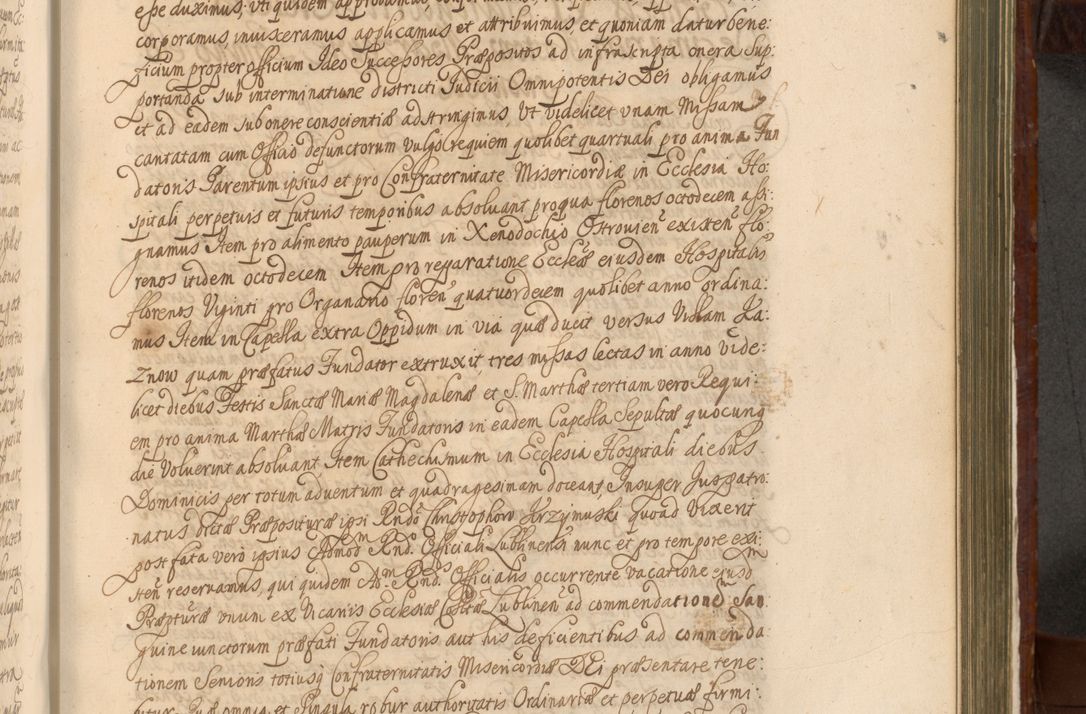 esse duximus: uti quidem approbamus,
corporamus, inuisceramus applicamus et attribuimus, et quoniam datur bene:
ficium propter officium Ideo Successores Præpositos ad infrascripta onera Sup:
portanda sub interminatione districti Judicii Omnipotentis Dei obligamus
et ad eadem sub onere conscientiæ adstringimus Ut videlicet unam Missam
cantatam cum Officio defunctorum vulgo requiem quolibet quartuali pro anima Fun
datoris Parentum ipsius et pro Confraternitate Misericordiæ in Ecclesia Ho:
spitali perpetuis et futuris temporibus absoluant pro qua florenos octodecem assi:
gnamus Item pro alimento pauperum in Xenodochio Ostrouień existeń flo:
renos itidem octodecem Item pro reparatione Eccleæ eiusdem Hospitalis
florenos Viginti pro Organario floreń quatuordecem quolibet anno ordina:
mus Item in Capella extra Oppidum in via quæ ducit versus Villam Ka:
znow quam præfatus Fundator extruxit, tres missas lectas in anno vide:
licet diebus Festis Sanctæ Mariæ Magdalenæ et S. Marthæ tertiam vero Requi:
em pro anima Marthæ Matris Fundatoris in eadem Capella Sepultæ quocunq
die Voluerint absoluant Item Cathechismum in Ecclesia Hospitali diebus
Dominicis per totum aduentum et quadragesimam doceant, Insuper Juspatro:
natus Præpositurae ipsi Rndo Christophoro Krzymuski quoad vixerit
post fata verò ipsius Admod Rnd. Officiali Lublinensi nunc et pro tempore exi:
steń reseruamus, qui quidem Adm Rnd. Officialis occurrente vacatione eiusdm
Præpturæ unum ex Vicariis Ecclesiæ Lublineń ad commendationem San
guine iunctorum præfati Fundatoris aut his deficientibus ad commenda
tionem Senioris totiusq Confraternitatis Misericordiæ DEi præsentare tene:
bitur. Quæ omnia et singula robur authoritatis Ordinariæ et perpetuæ firmi: